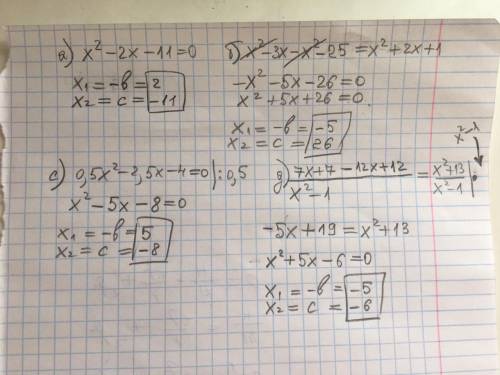 а) x² - 2x - 11 = 0
x₁ = -в = 2
x₂ = c = -11
б) x² - 3x - x² - 25 = x² + 2x + 1
-x² - 5x - 26 = 0
x² + 5x + 26 = 0.
x₁ = -в = -5
x₂ = c = 26
с) 0,5x² - 2,5x - 4 = 0 | : 0,5
x² - 5x - 8 = 0
x₁ = -в = 5
x₂ = c = -8
д) (7x + 7 - 12x + 12) / (x² - 1) = (x² + 13) / (x² - 1) | •
-5x + 19 = x² + 13
x² + 5x - 6 = 0
x₁ = -в = -5
x₂ = c = -6